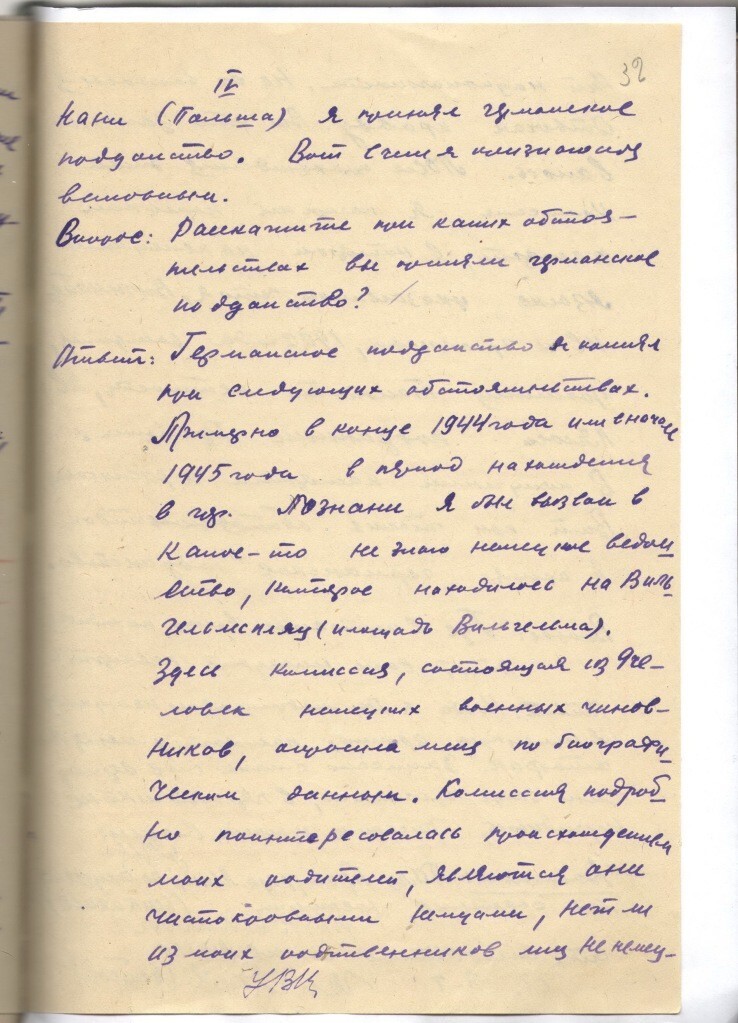 32
IV
нани (Польша) я принял германское
подданство. В этом я и признаю себя
виновным.
Вопрос: Расскажите при каких обстоя-
тельствах вы приняли германское
подданство?
Ответ: Германское подданство я принял
при следующих обстоятельствах.
Примерно в конце 1944 года или в начале
1945 года в период нахождения
в гор. Познани я был вызван в
какое-то не знаю немецкое ведом
ство, которое находилось на Виль
гельмсплац (площадь Вильгельма).
Здесь комиссия, состоящая из 9 че-
ловек немецких военных чинов-
ников, опросила меня по биографи
ческим данным. Комиссия подроб-
но поинтересовалась происхождением
моих родителей, являются они
чистокровными немцами, нет ли
из моих родственников лиц не немец-